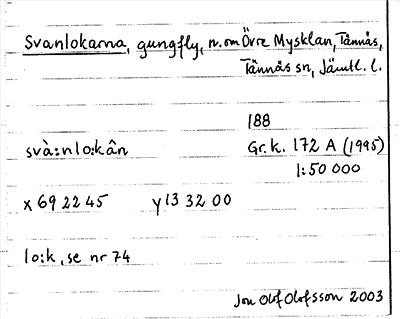 Svanlokarna, gungfly, n. om Övre Mysklan, Tännäs,
Tännäs sn, Jämtl. l.
188
svà:nlo:kân Gr.k. 172 A (1995)
1:50 000
x 69 22 45 y 13 32 00
lo:k, se nr 74
Jon Olof Olofsson 2003